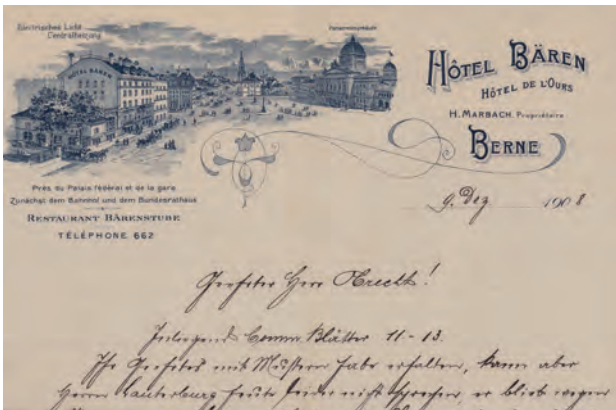 Electrisches Licht
Centralheizung
Parlamentsgebäude
HÔTEL BÄREN
HÔTEL BÄREN
HÔTEL DE L'OURS
H. MARBACH, Propriétaire
BERNE
Près du Palais fédéral et de la gare
Zunächst dem Bahnhof und dem Bundesrathaus
RESTAURANT BÄRENSTUBE
TÉLÉPHONE 662
9. Dez. 1908
Geehrter Herr Obrecht!
Inliegend Comm. Blätter 11-13.
Ihr Geehrtes mit Mustern habe erhalten, kann aber
Herrn Lauterburg heute leider nicht sprechen, er blieb wegen